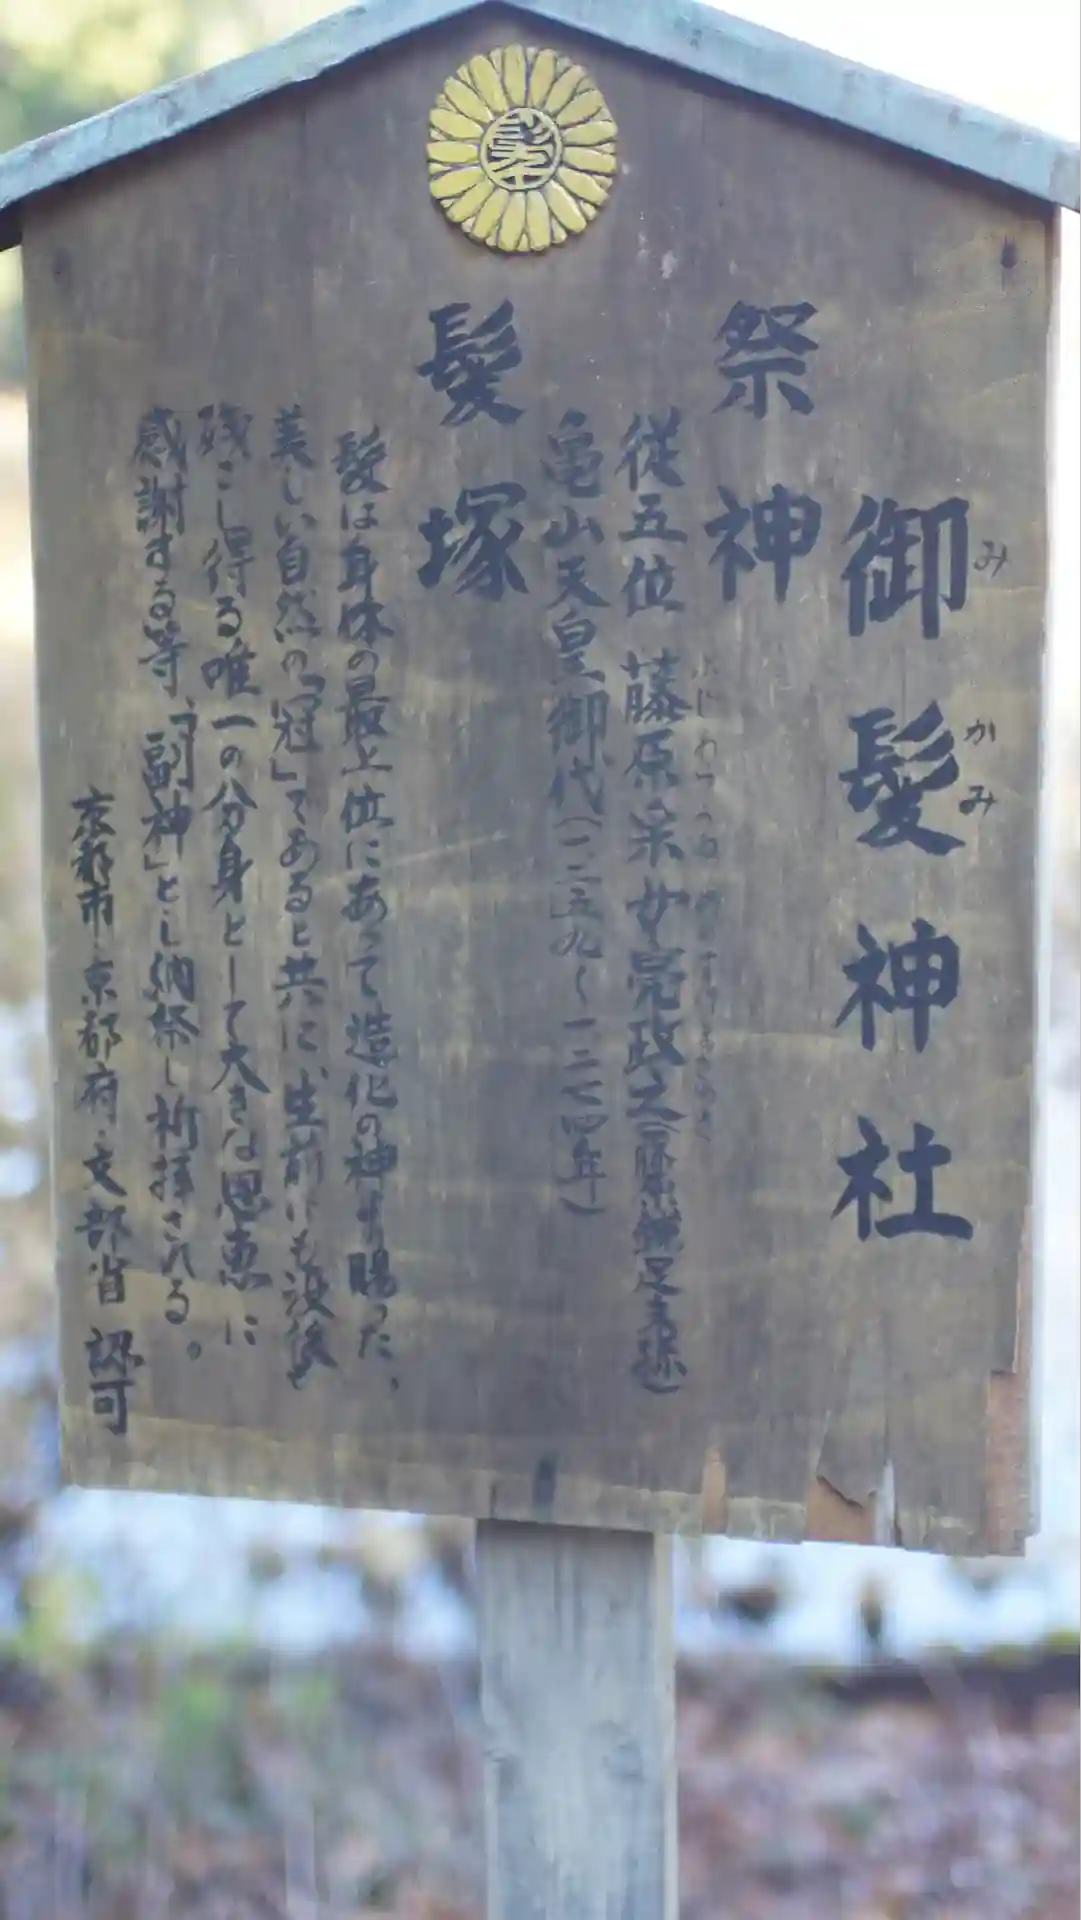 御髪神社
み かみ
祭神
従五位 藤原采女亮政之(藤原鎌足末孫)
亀山天皇御代(一二五九～一二七四年)
髪塚
髪は身体の最上位にあって造化の神より賜った、
美しい自然の「冠」であると共に、生前にも没後も
残こし得る唯一の分身として大きな恩恵に
感謝する等、「副神」とし納祭し祈拝される。
京都市・京都府・文部省 認可